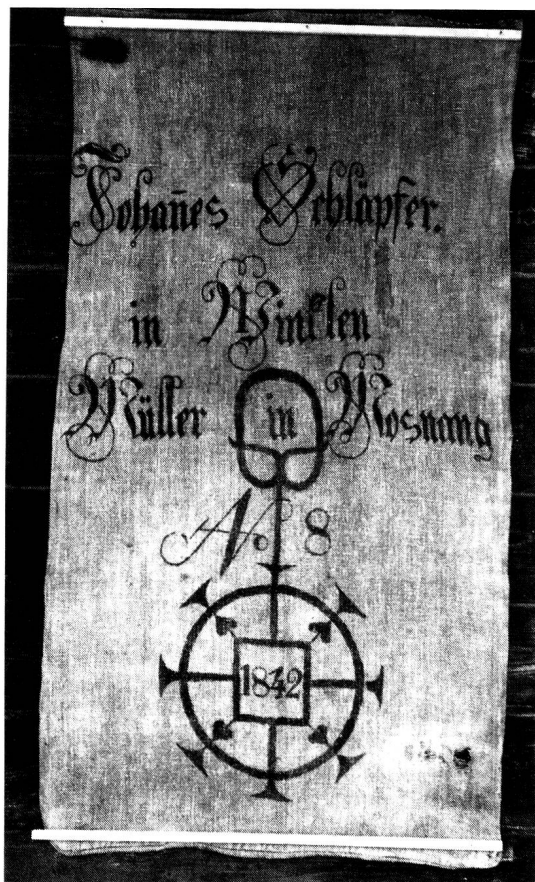 Johan̄es Schläpfer.
in Winklen
Müller in Mosnang
N. 8
1842